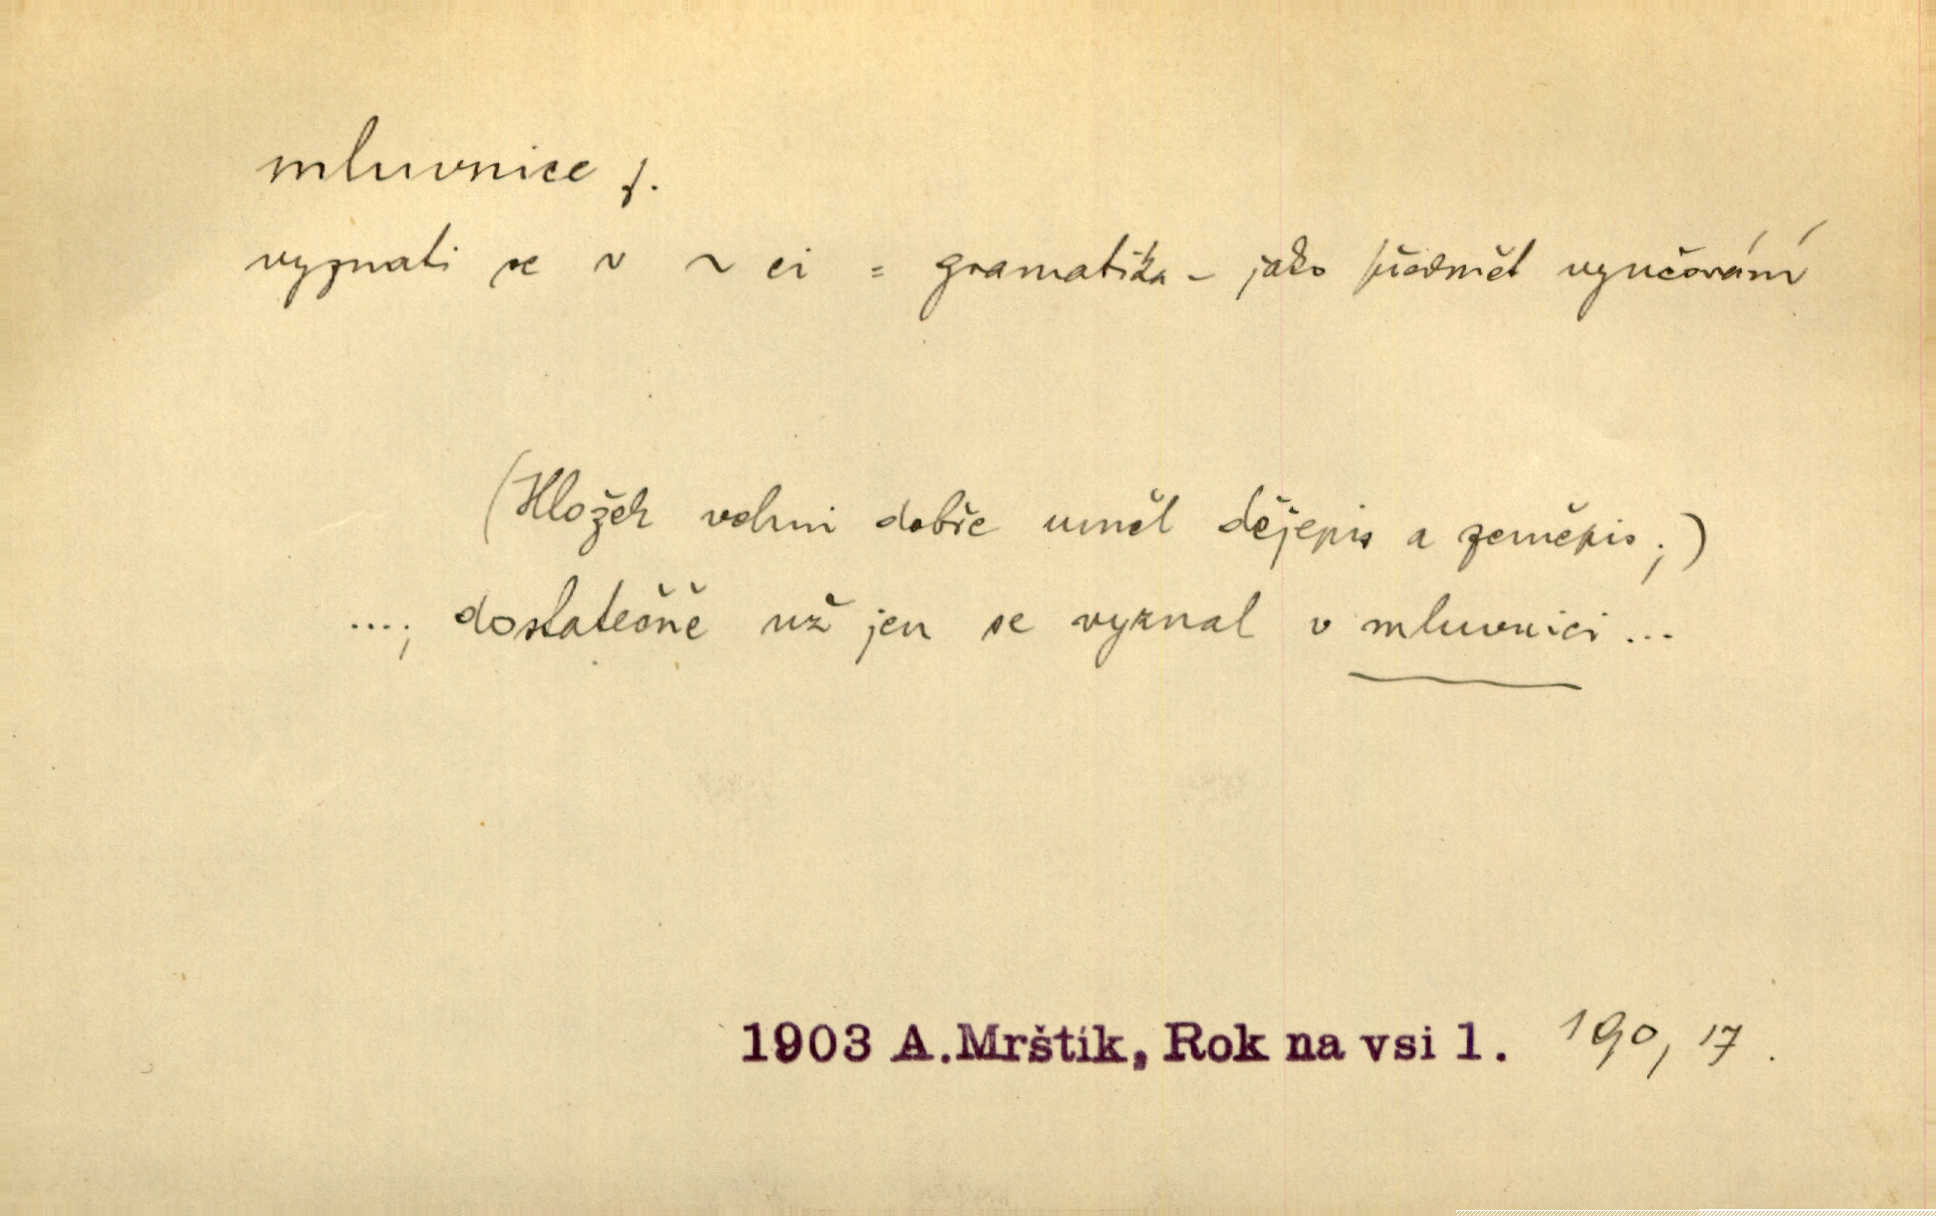 mluvnice f.
vyznati se v ~ ci = gramatika - jako předmět vyučování
(Hložek velmi dobře uměl dějepis a zeměpis;)
...; dostatečně už jen se vyznal v mluvnici ...
1903 A.Mrštík, Rok na vsi 1. 190, 17.